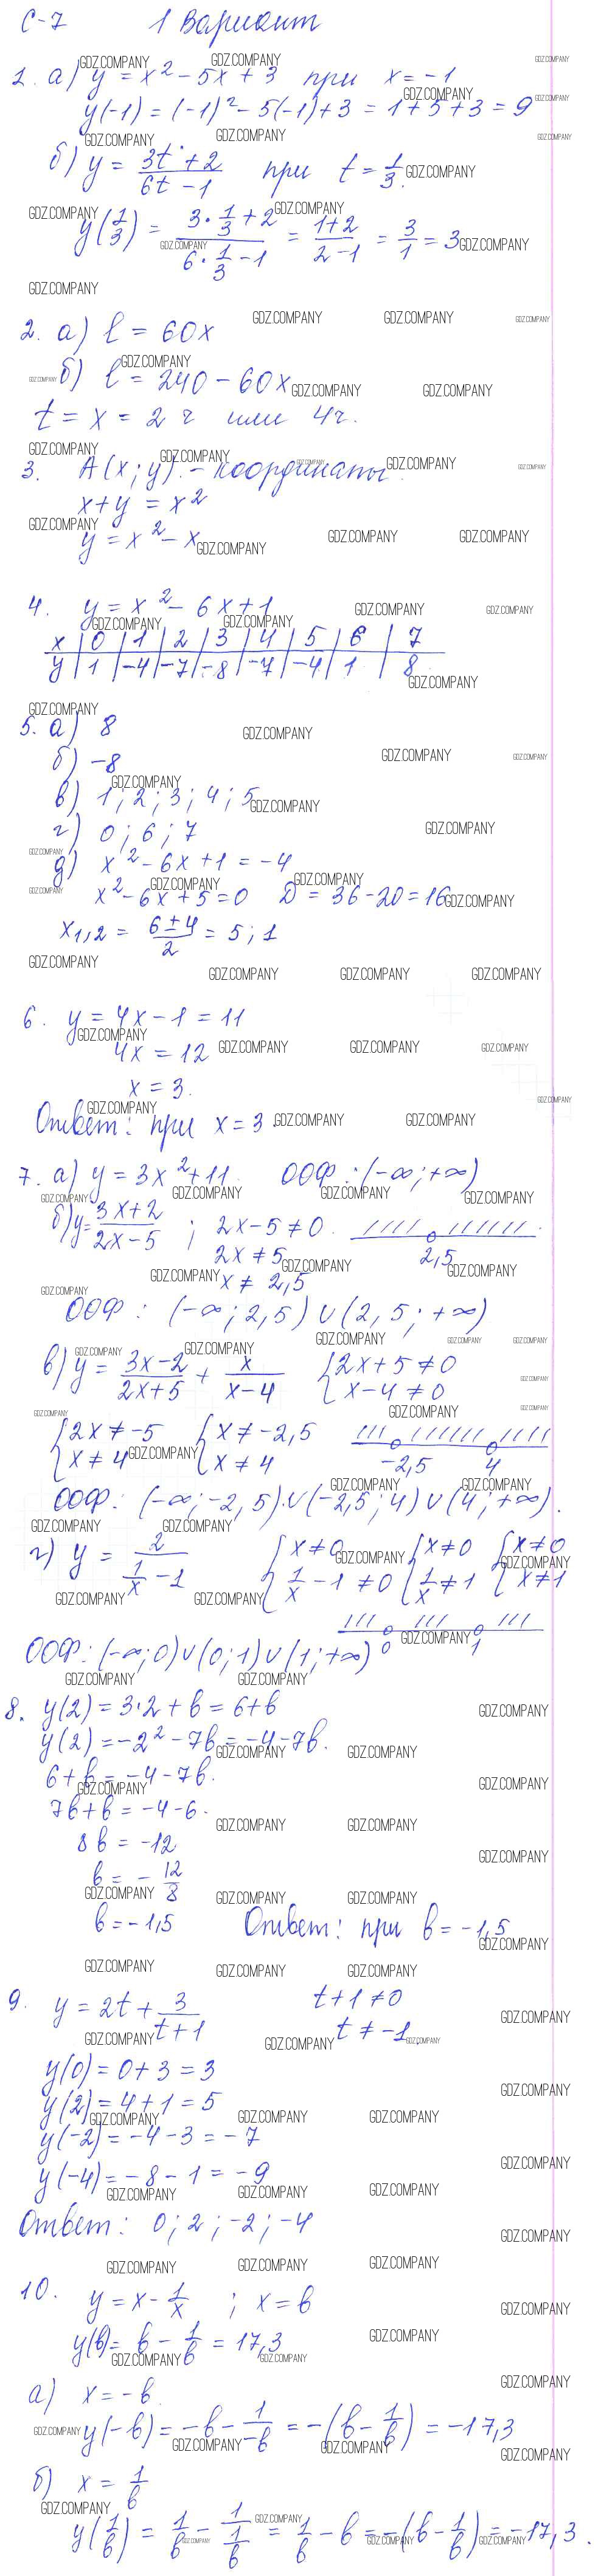 С-7 1 Вариант
1. а) y = x² - 5x + 3 при x = -1
y(-1) = (-1)² - 5(-1) + 3 = 1 + 5 + 3 = 9
б) y = (3t + 2)/(6t - 1) при t = 1/3.
y(1/3) = (3 · 1/3 + 2)/(6 · 1/3 - 1) = (1+2)/(2-1) = 3/1 = 3
2. а) l = 60x
б) l = 240 - 60x
t = x = 2 ч или 4 ч.
3. A(x; y) - координаты.
x + y = x²
y = x² - x
4. y = x² - 6x + 1
x | 0 | 1 | 2 | 3 | 4 | 5 | 6 | 7
y | 1 | -4 | -7 | -8 | -7 | -4 | 1 | 8
5. а) 8
б) -8
в) 1; 2; 3; 4; 5
г) 0; 6; 7
д) x² - 6x + 1 = -4
x² - 6x + 5 = 0 D = 36 - 20 = 16
x1,2 = (6 ± 4)/2 = 5; 1
6. y = 4x - 1 = 11
4x = 12
x = 3.
Ответ: при x = 3.
7. а) y = 3x² + 11 ООФ: (-∞; +∞)
б) y = (3x+2)/(2x-5) ; 2x - 5 ≠ 0.
2x ≠ 5 2,5
x ≠ 2,5
ООФ: (-∞; 2,5) ∪ (2,5; +∞)
в) y = (3x-2)/(2x+5) + x/(x-4) { 2x + 5 ≠ 0 x - 4 ≠ 0
{ 2x ≠ -5 x ≠ 4 { x ≠ -2,5 x ≠ 4 -2,5 4
ООФ: (-∞; -2,5) ∪ (-2,5; 4) ∪ (4; +∞).
г) y = 2/(1/x - 1) { x ≠ 0 1/x - 1 ≠ 0 { x ≠ 0 1/x ≠ 1 { x ≠ 0 x ≠ 1
0 1
ООФ: (-∞; 0) ∪ (0; 1) ∪ (1; +∞)
8. y(2) = 3·2 + b = 6 + b
y(2) = -2² - 7b = -4 - 7b.
6 + b = -4 - 7b.
7b + b = -4 - 6.
8b = -12
b = - 12/8
b = -1,5 Ответ: при b = -1,5
9. y = 2t + 3/(t+1) t + 1 ≠ 0
t ≠ -1.
y(0) = 0 + 3 = 3
y(2) = 4 + 1 = 5
y(-2) = -4 - 3 = -7
y(-4) = -8 - 1 = -9
Ответ: 0; 2; -2; -4
10. y = x - 1/x ; x = b
y(b) = b - 1/b = 17,3
а) x = -b
y(-b) = -b - 1/-b = -(b - 1/b) = -17,3
б) x = 1/b
y(1/b) = 1/b - 1/(1/b) = 1/b - b = -(b - 1/b) = -17,3.
GDZ.COMPANY